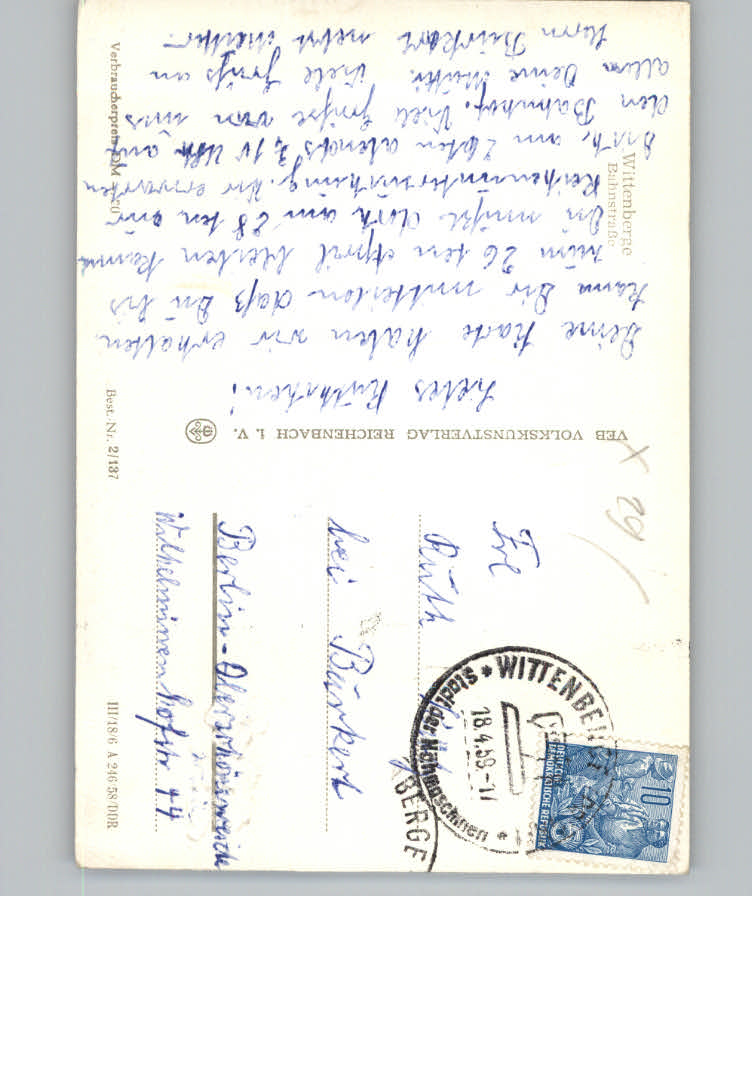 Wittenberge
Bahnstraße
Liebes Ruthchen!
Deine Karte haben wir erhalten.
Kann Dir mitteilen daß Du bis
zum 26 ten April bleiben kannst
Du mußt doch am 28 ten zur
Reihenuntersuchung. Wir erwarten
Dich, am 26ten abends Uhr auf
den Bahnhof. Viele Grüße von uns
allen Deine Mutti. Viele Grüße an
Herrn Bürkert nebst Mutter.
VEB VOLKSKUNSTVERLAG REICHENBACH I. V.
Verbraucherpreis DM
Best.-Nr. 2/137
III/18/6 A 246 58 DDR
X 29/
Frl
Ruth
bei Bürkert
Berlin-Oberschöneweide
Wilhelminenhofstr 44
WITTENBERGE
18.4.59-17
Stadt der Nähmaschinen
BERGE
DEUTSCHE
DEMOKRATISCHE REPUBLIK
10